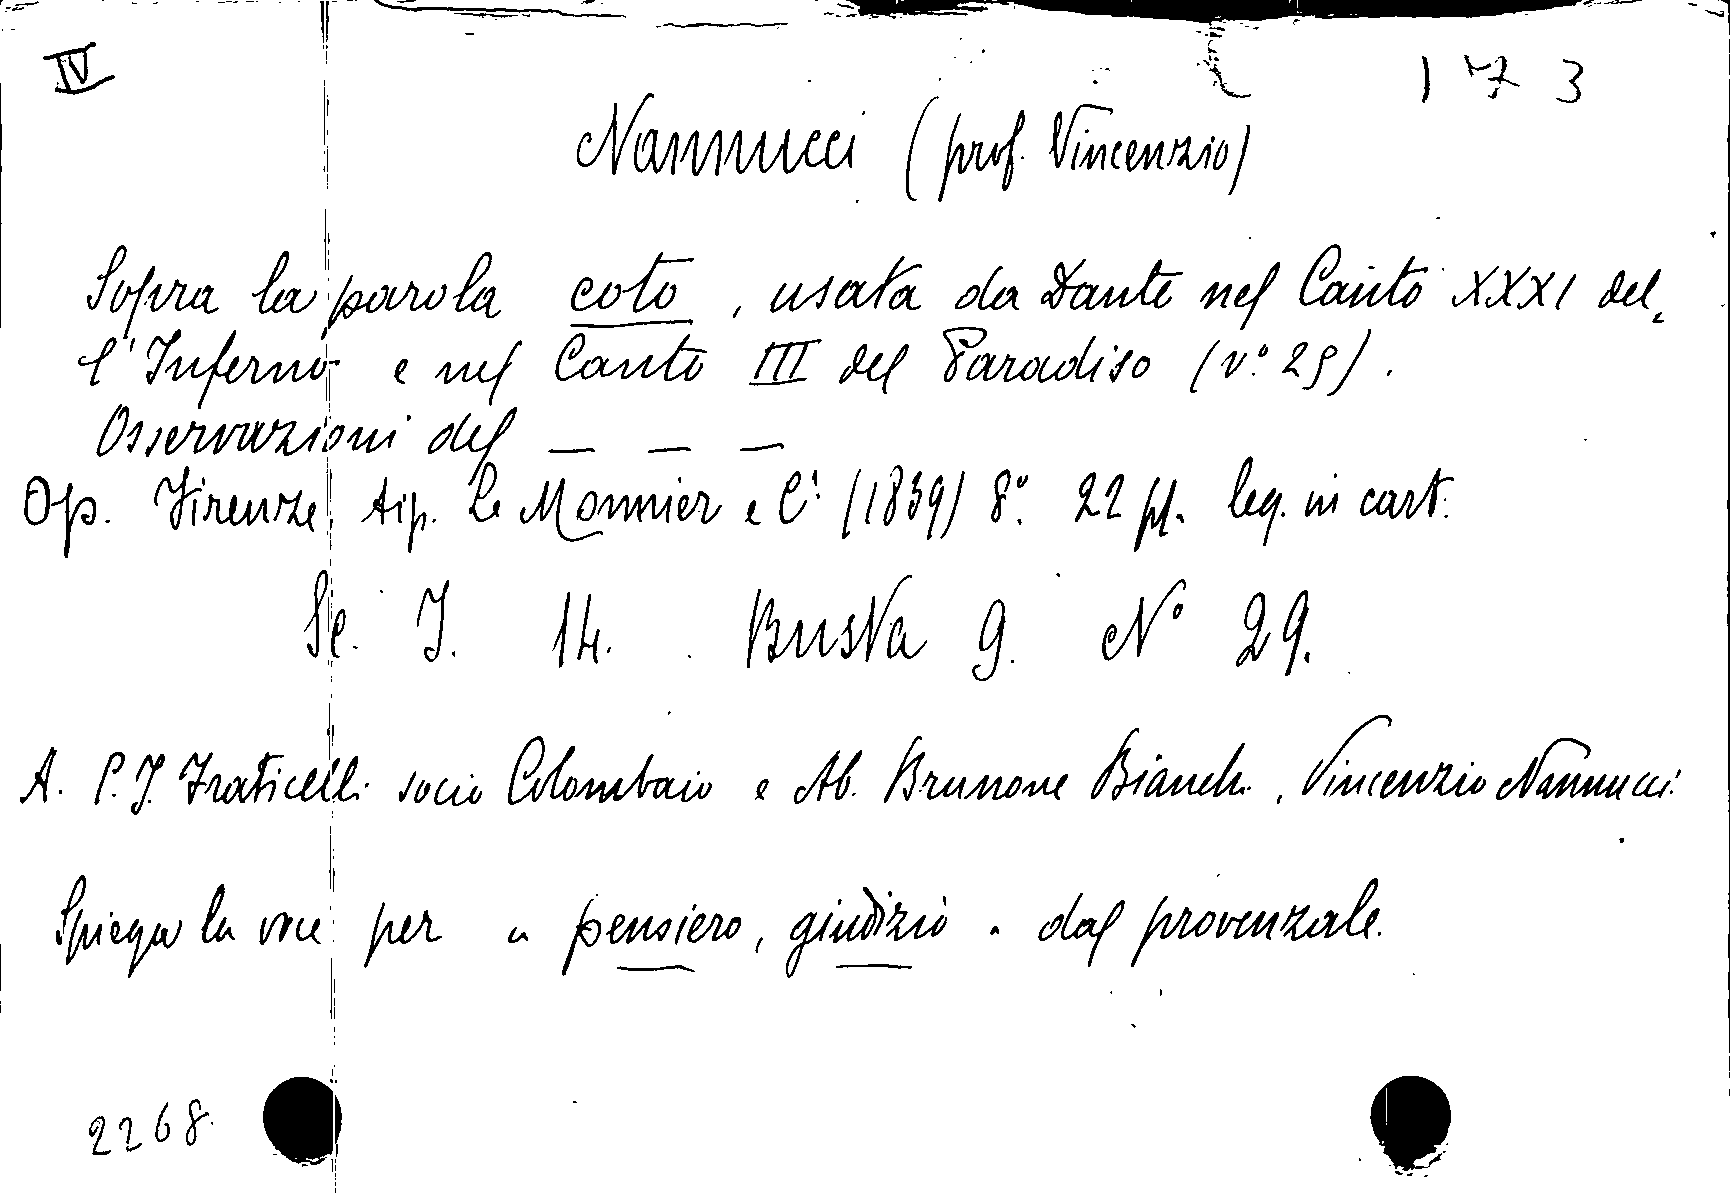 IV
173
Nannucci (prof. Vincenzio)
Sopra la parola coto, usata da Dante nel Canto XXXI del,
l'Inferno e nel Canto III del Paradiso (v.º 25).
Osservazioni del — — —
Op. Firenze, tip. Le Monnier e C.i (1839) 8.º 22 pp. leg. in cart.
Sc. I. 14. Busta 9. Nº 29.
A. P. J. Fraticelli socio Colombaio e Ab. Brunone Bianchi, Vincenzio Nannucci.
Spiega la voce per " pensiero, giudizio " dal provenzale.
2268.